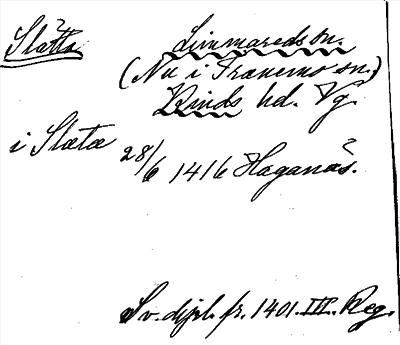 Slätta Limmareds sn.
(Nu i Tranemo sn.)
Kinds hd. Vg.
i Slætæ 28/6 1416 Haganæs.
?
Sv. dipl. fr. 1401. III. Reg.